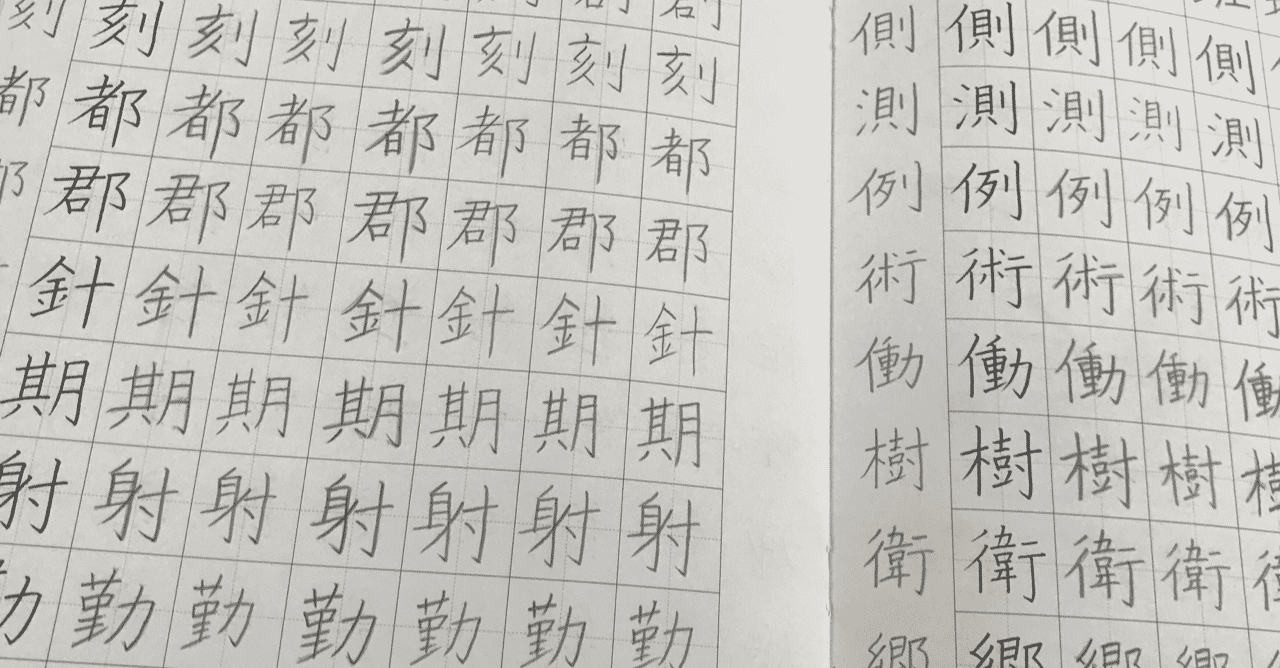 刻刻刻刻刻刻刻刻
都都都都都都都都
郡郡郡郡郡郡郡
針針針針針針針
期期期期期期期
射射射射射射射
勤勤勤勤勤勤
側側側側側
測測測測測
例例例例例
術術術術術
働働働働働
樹樹樹樹
衛衛衛衛
郷郷郷郷